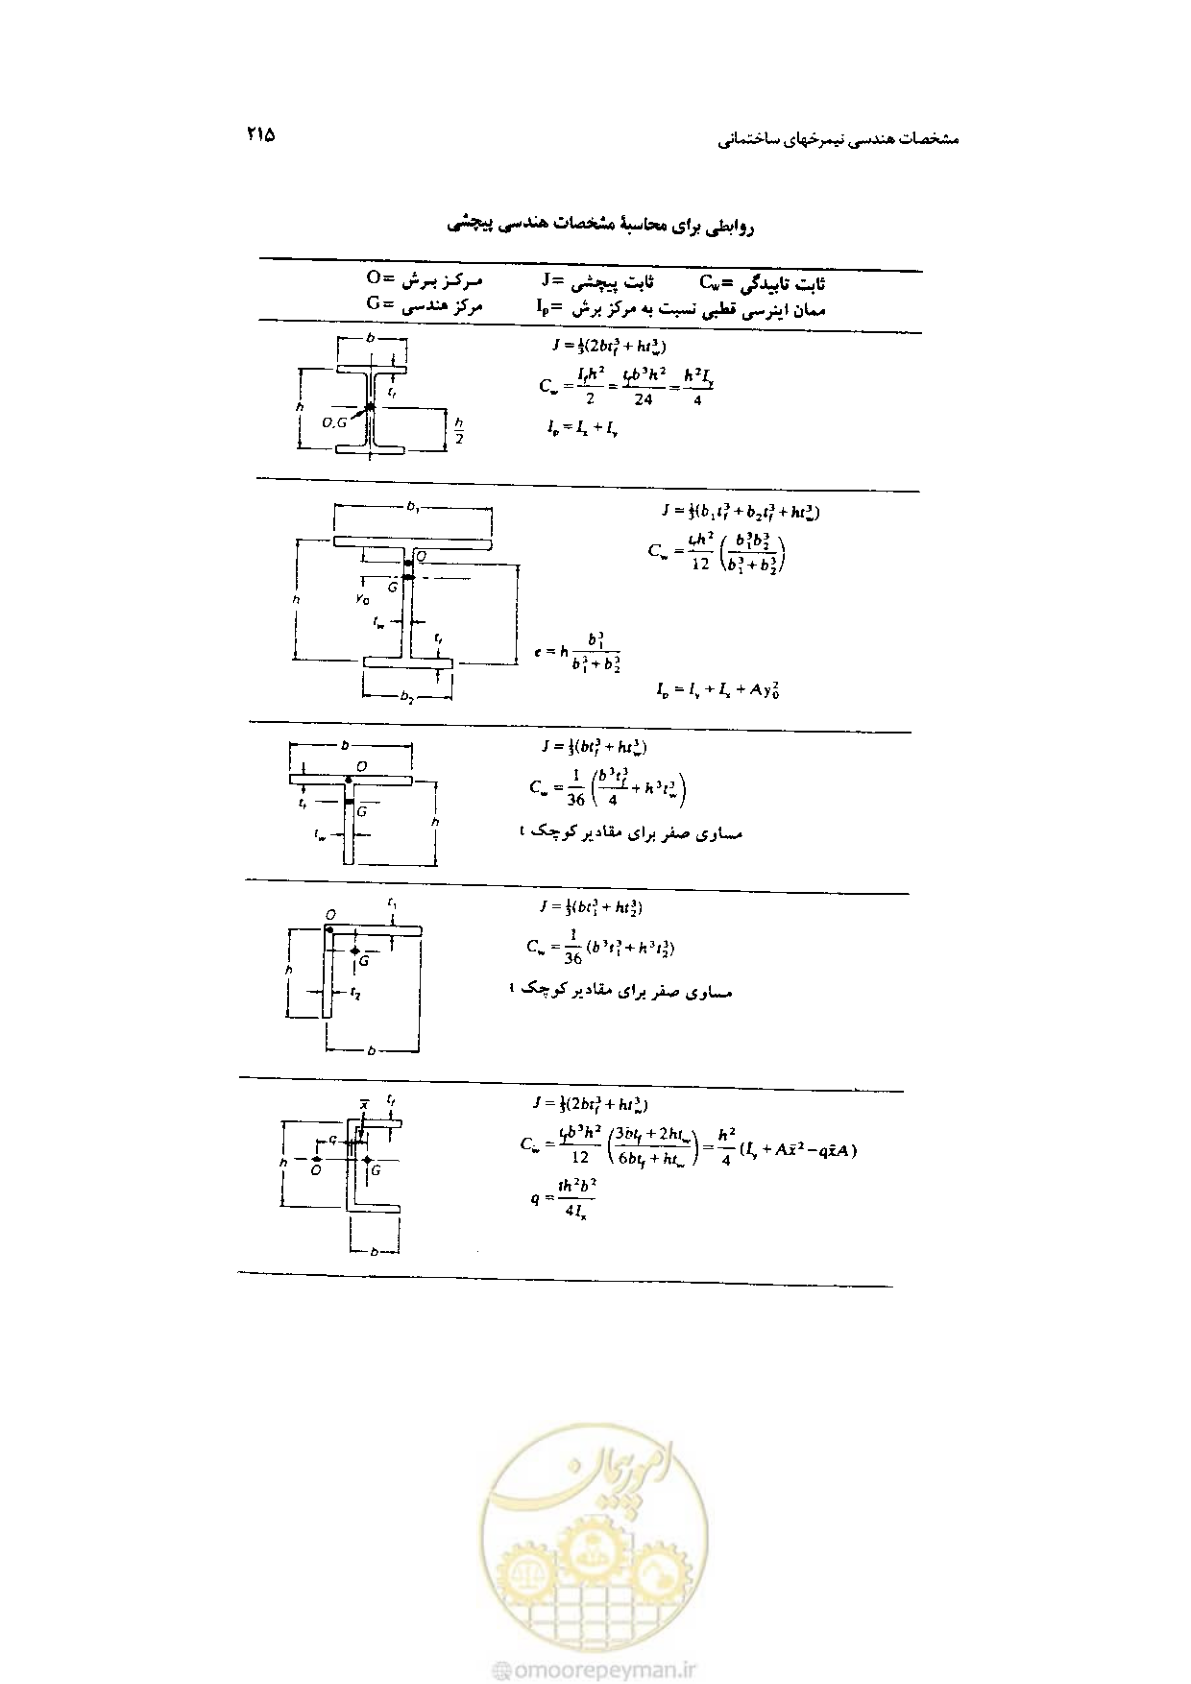 مشخصات هندسی نیمرخهای ساختمانی
۲۱۵
روابطی برای محاسبهٔ مشخصات هندسی پیچشی
ثابت تابیدگی =C_w ثابت پیچشی =J مرکز برش =O
ممان اینرسی قطبی نسبت به مرکز برش =I_p مرکز هندسی =G
b
t_f
h
O,G
h/2
J = ⅓(2bt_f³ + ht_w³)
C_w = I_f h²/2 = t_f b³h²/24 = h²I_y/4
I_p = I_x + I_y
b₁
O
G
h
y₀
t_w
t_f
b₂
J = ⅓(b₁t_f³ + b₂t_f³ + ht_w³)
C_w = t_f h²/12 (b₁³b₂³/(b₁³ + b₂³))
e = h b₁³/(b₁³ + b₂³)
I_p = I_y + I_x + Ay₀²
b
O
t_f
G
t_w
h
J = ⅓(bt_f³ + ht_w³)
C_w = 1/36 (b³t_f³/4 + h³t_w³)
مساوی صفر برای مقادیر کوچک t
O
t₁
G
h
t₂
b
J = ⅓(bt₁³ + ht₂³)
C_w = 1/36 (b³t₁³ + h³t₂³)
مساوی صفر برای مقادیر کوچک t
x̄
t_f
q
h
O
G
b
J = ⅓(2bt_f³ + ht_w³)
C_w = t_f b³h²/12 ((3bt_f + 2ht_w)/(6bt_f + ht_w)) = h²/4 (I_y + Ax̄² − qx̄A)
q = th²b²/4I_x
امور پیمان
@omoorepeyman.ir